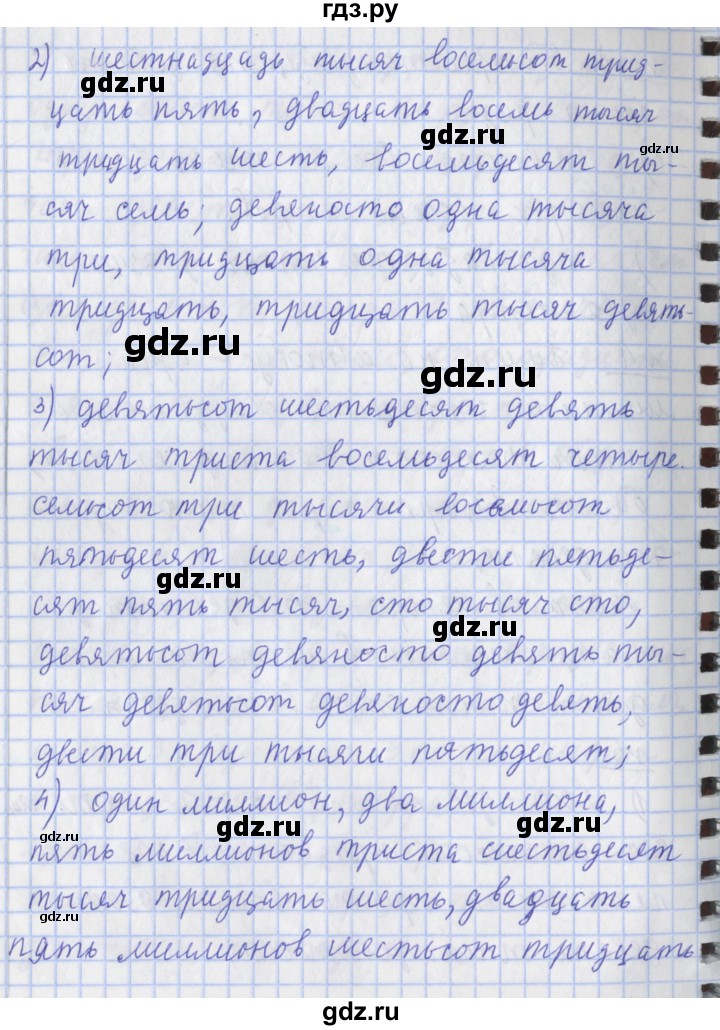 гдз.ру
2) шестнадцадь тысяч восемьсот трид-
gdz.ru
цать пять, двадцать восемь тысяч
gdz.ru
gdz.ru
тридцать шесть, восемьдесят ты-
gdz.ru
сяч семь; девяносто одна тысяча
три, тридцать одна тысяча
тридцать, тридцать тысяч девять-
gdz.ru
сот;
gdz.ru
3) девятьсот шестьдесят девять
тысяч триста восемьдесят четыре.
семьсот три тысячи восемьсот
пятьдесят шесть, двести пятьде-
gdz.ru
сят пять тысяч, сто тысяч сто,
gdz.ru
девятьсот девяносто девять ты-
сяч девятьсот девяносто девять,
двести три тысячи пятьдесят;
4) один миллион, два миллиона,
gdz.ru
gdz.ru
gdz.ru
пять миллионов триста шестьдесят
тысяч тридцать шесть, двадцать
gdz.ru
пять миллионов шестьсот тридцать
gdz.ru